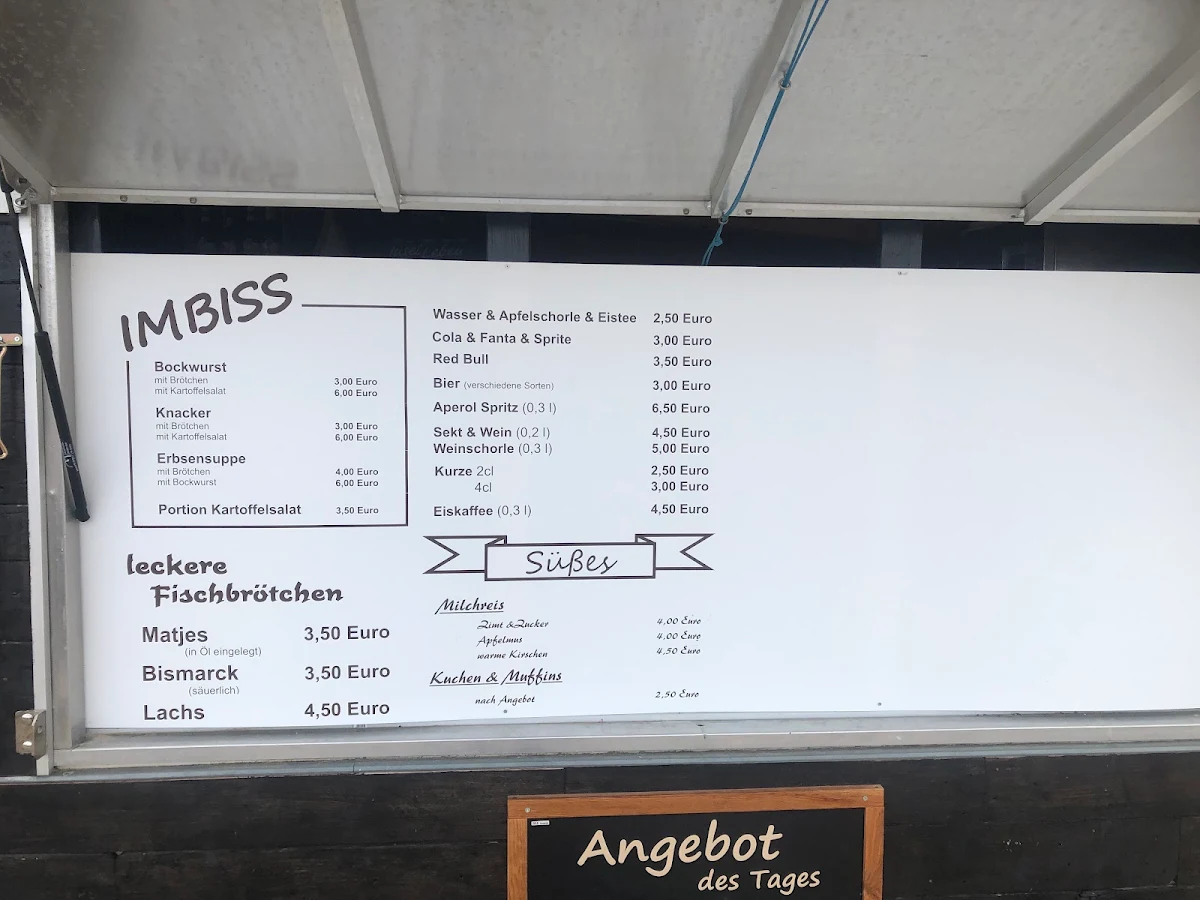 IMBISS
Bockwurst
mit Brötchen 3,00 Euro
mit Kartoffelsalat 6,00 Euro
Knacker
mit Brötchen 3,00 Euro
mit Kartoffelsalat 6,00 Euro
Erbsensuppe
mit Brötchen 4,00 Euro
mit Bockwurst 6,00 Euro
Portion Kartoffelsalat 3,50 Euro
leckere
Fischbrötchen
Matjes 3,50 Euro
(in Öl eingelegt)
Bismarck 3,50 Euro
(säuerlich)
Lachs 4,50 Euro
Wasser & Apfelschorle & Eistee 2,50 Euro
Cola & Fanta & Sprite 3,00 Euro
Red Bull 3,50 Euro
Bier (verschiedene Sorten) 3,00 Euro
Aperol Spritz (0,3 l) 6,50 Euro
Sekt & Wein (0,2 l) 4,50 Euro
Weinschorle (0,3 l) 5,00 Euro
Kurze 2cl 2,50 Euro
4cl 3,00 Euro
Eiskaffee (0,3 l) 4,50 Euro
Süßes
Milchreis
Zimt &Zucker 4,00 Euro
Apfelmus 4,00 Euro
warme Kirschen 4,50 Euro
Kuchen & Muffins
nach Angebot 2,50 Euro
Angebot
des Tages